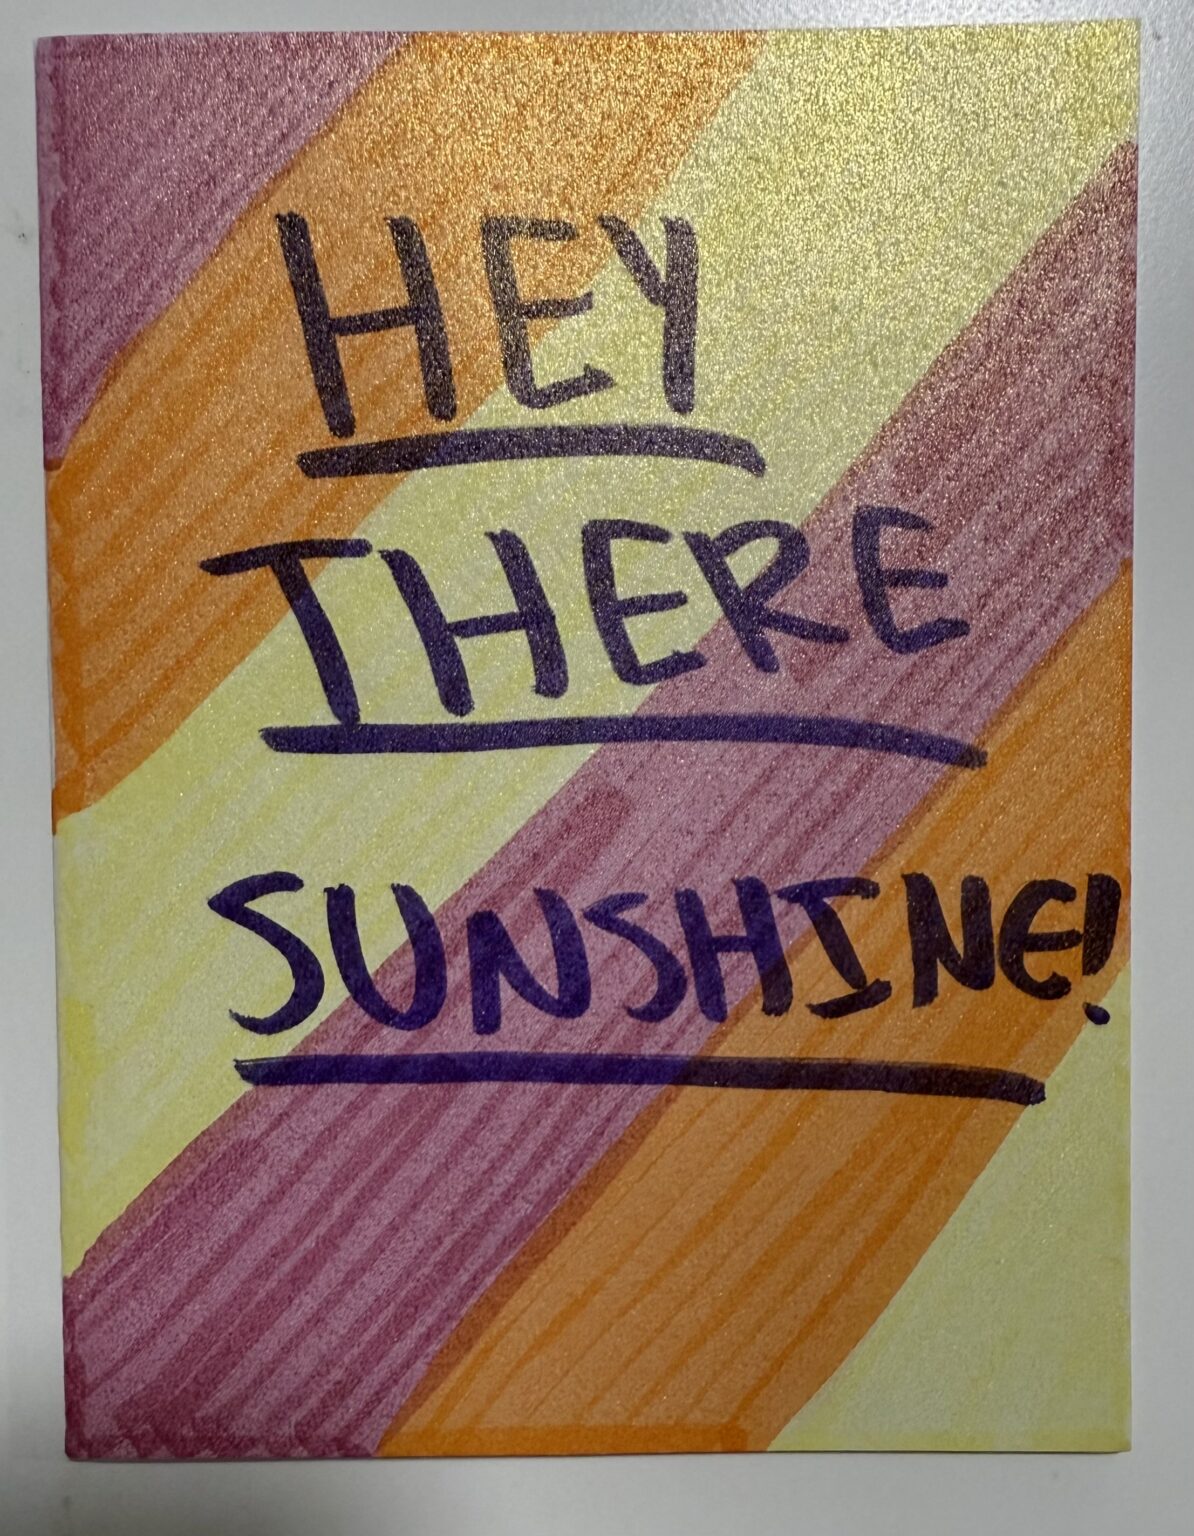 HEY
THERE
SUNSHINE!